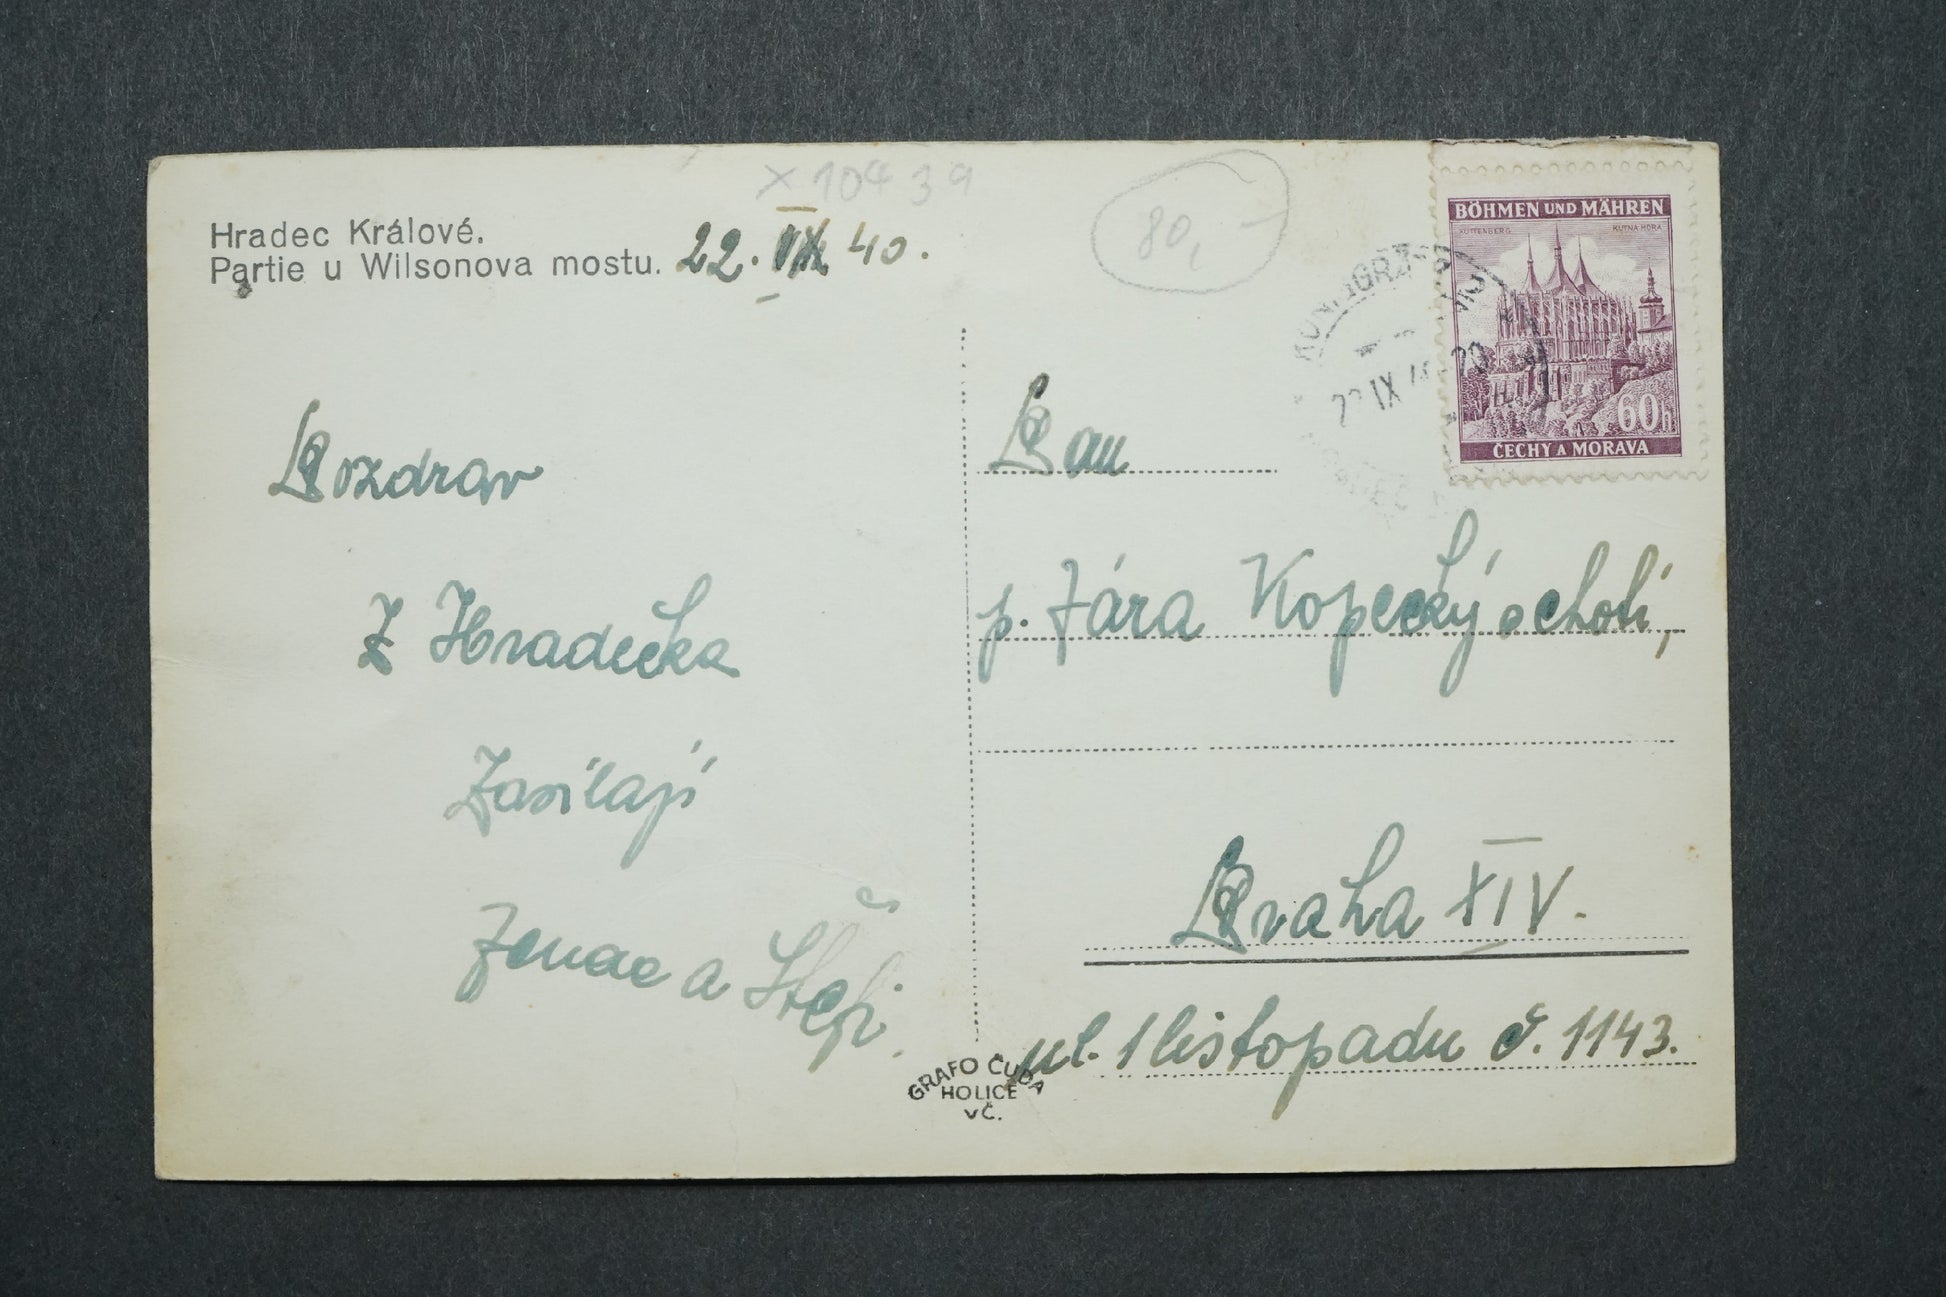 x 104 39
80,-
Hradec Králové.
Partie u Wilsonova mostu. 22. IX 40.
BÖHMEN UND MÄHREN
KUTTENBERG KUTNÁ HORA
60h
ČECHY A MORAVA
22 IX 40 20
Pozdrav
z Hradecka
Zasílají
Ženac a Štepi
Pan
p. Jára Kopecký s chotí,
Praha XIV.
ul. 1 listopadu č. 1143.
GRAFO ČUDA
HOLICE
VČ.